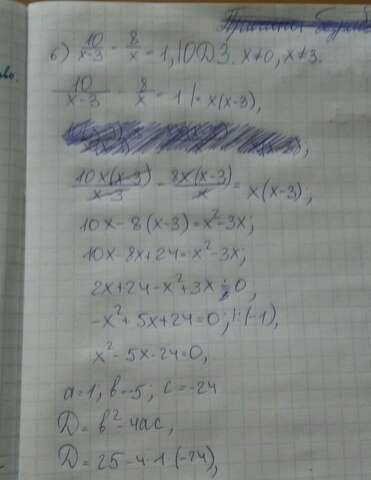 б) 10/(x-3) - 8/x = 1, | ОДЗ. x≠0, x≠3.
10/(x-3) - 8/x = 1 | · x(x-3),
10x(x-3)/(x-3) - 8x(x-3)/x = x(x-3);
10x - 8(x-3) = x² - 3x;
10x - 8x + 24 = x² - 3x;
2x + 24 - x² + 3x = 0,
-x² + 5x + 24 = 0; |:(-1),
x² - 5x - 24 = 0,
a=1, b=-5; c=-24
D = b² - 4ac,
D = 25 - 4·1·(-24),